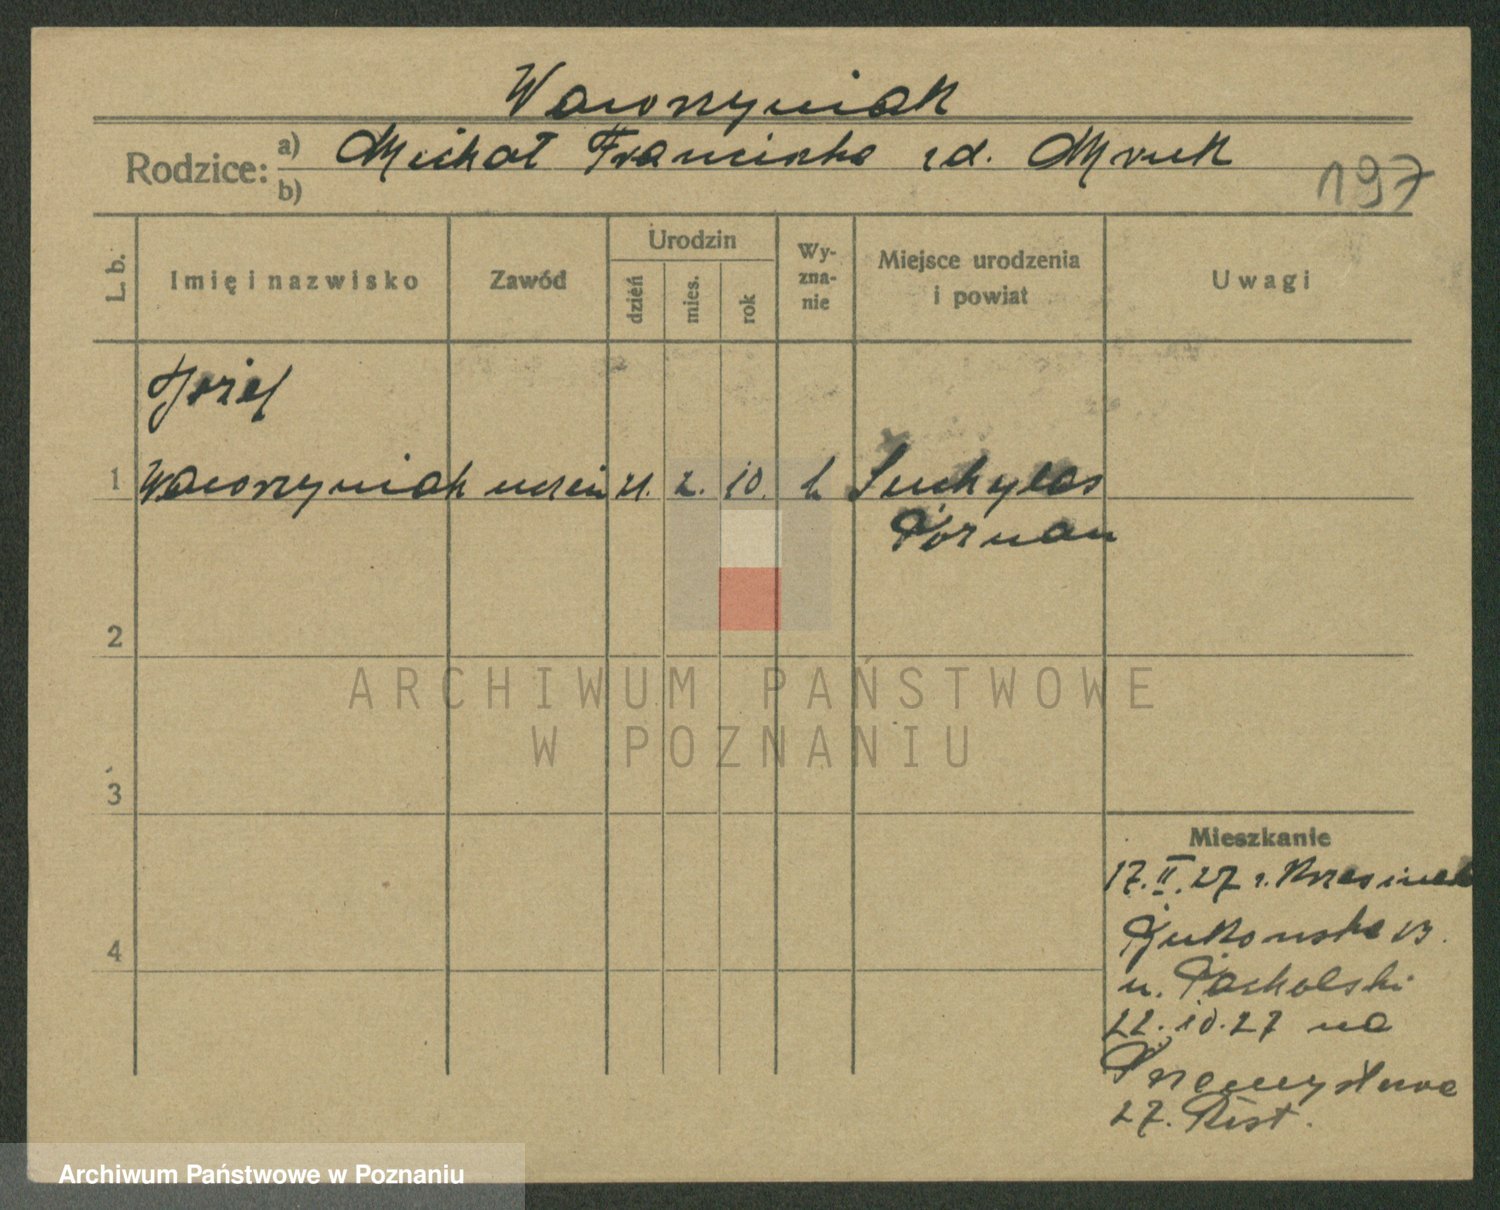 Wawrzyniak
Rodzice: a) Michał Franciszka z d. Mruk
b)
197
L. b. Imię i nazwisko Zawód Urodzin dzień mies. rok Wyznanie Miejsce urodzenia i powiat Uwagi
Józef
1 Wawrzyniak uczeń 21. 2. 10. k Suchylas
Poznań
2
3
4
Mieszkanie
17.II.27 z
Żukowska 13.
u. Pacholski
22.10.27 na
Przemysłowa
27. Rist.
ARCHIWUM PAŃSTWOWE
W POZNANIU
Archiwum Państwowe w Poznaniu